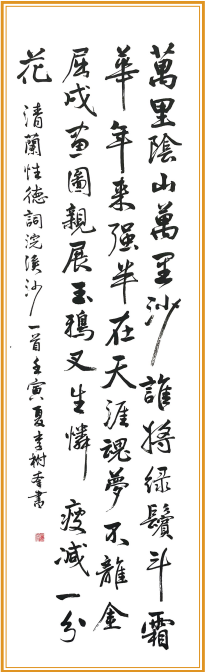 萬里陰山萬里沙誰將綠鬢斗霜
華年來强半在天涯魂夢不離金
屈戌畫圖親展玉鴉叉生憐瘦减一分
花
清蘭性德詞浣溪沙一首壬寅夏李樹春書